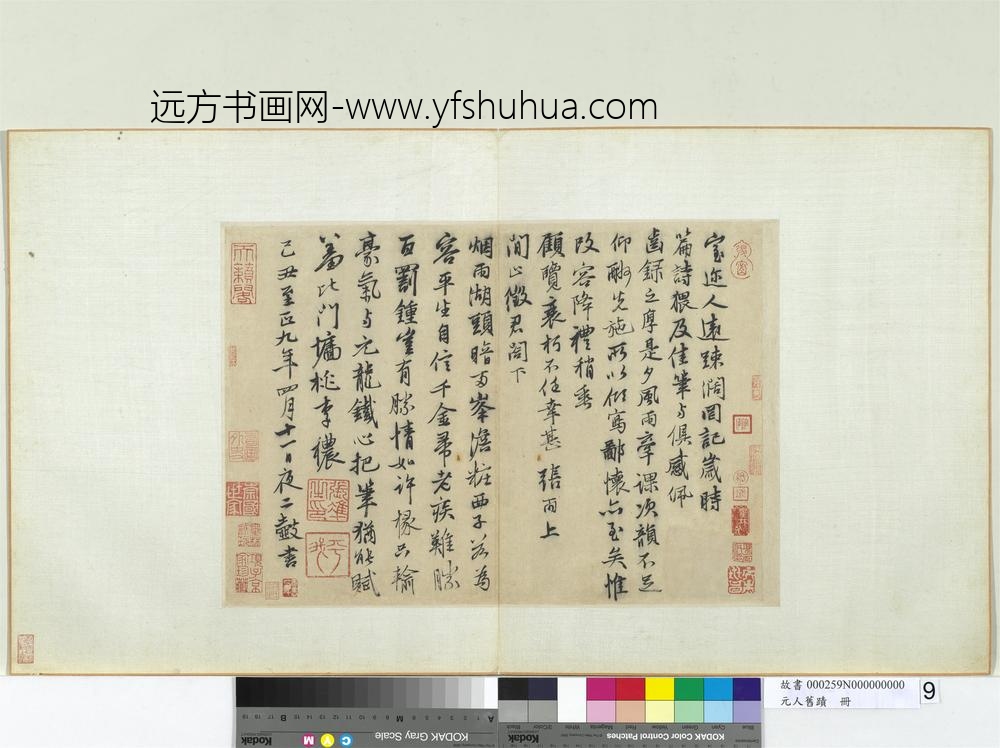 远方书画网-www.yfshuhua.com
室迩人遠踈闊罔記歲時
篇詩猥及佳筆与俱感佩
齒録之厚是夕風雨牽課次韻不足
仰酬先施所以傾寫鄙懷亦至矣惟
改容降禮稍垂
顧覽衰朽不任幸甚 張雨上
閒止徵君閤下
烟雨湖頭暗両峯澹粧西子若為
容平生自信千金帚老疾難勝
百罰鍾豈有勝情如許掾只輸
豪氣与元龍鐵心把筆猶能賦
羞比門墻桃李穠
己丑至正九年四月十一日夜二鼓書
故書 000259N000000000
元人舊蹟 冊
9
KODAK Gray Scale
KODAK Color Control Patches
Kodak
C
Y
M
A
M
B
Blue
Cyan
Green
Yellow
Red
Magenta
White
3/Color
Black